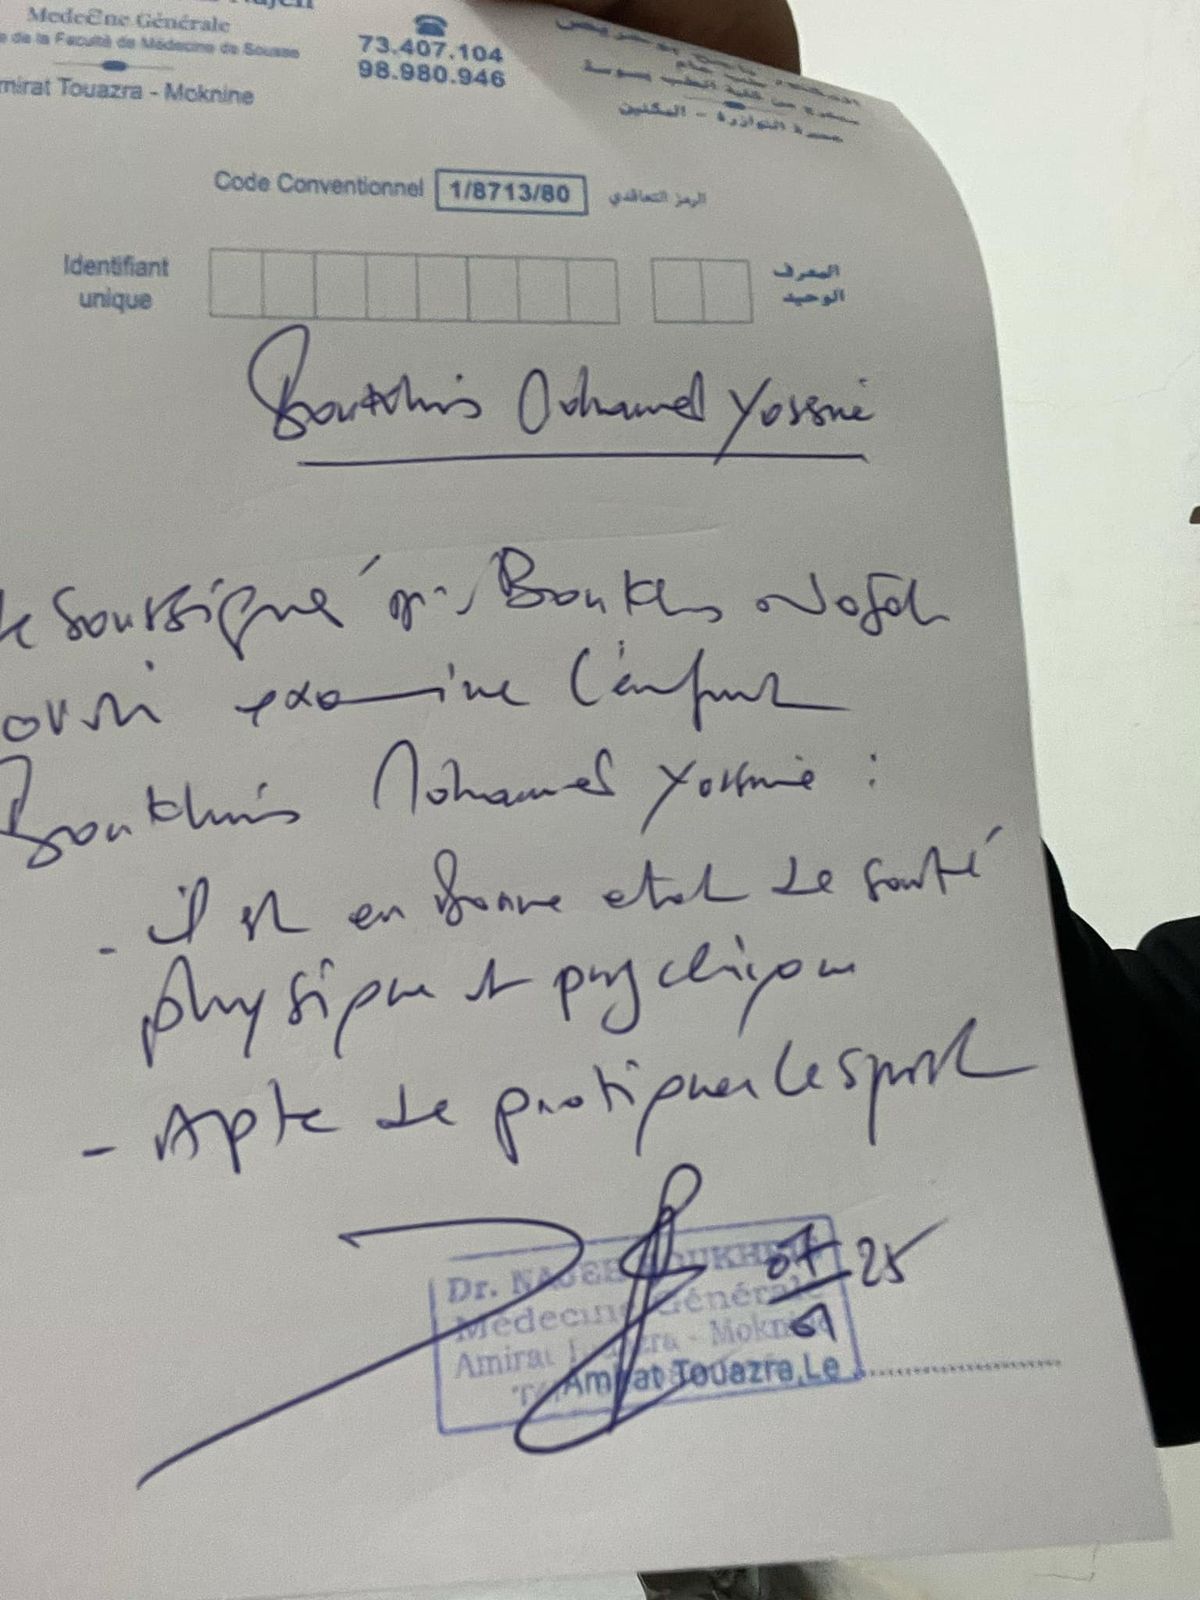 Médecine Générale
de la Faculté de Médecine de Sousse
Amirat Touazra - Moknine
73.407.104
98.980.946
متخرج من كلية الطب بسوسة
عميرة التوازرة - المكنين
Code Conventionnel 1/8713/80 الرمز التعاقدي
Identifiant
unique
المعرف
الوحيد
Boukhris Mohamed Yossri
Je soussigné Dr Boukhris Najeh
avoir examiné l'enfant
Boukhris Mohamed Yossri :
- il est en bonne etat de santé
physique et psychique
- Apte de pratiquer le sport
Dr. NAJEH BOUKHRIS
Médecine Générale
Amirat Touazra - Moknine
25
Amirat Touazra, Le